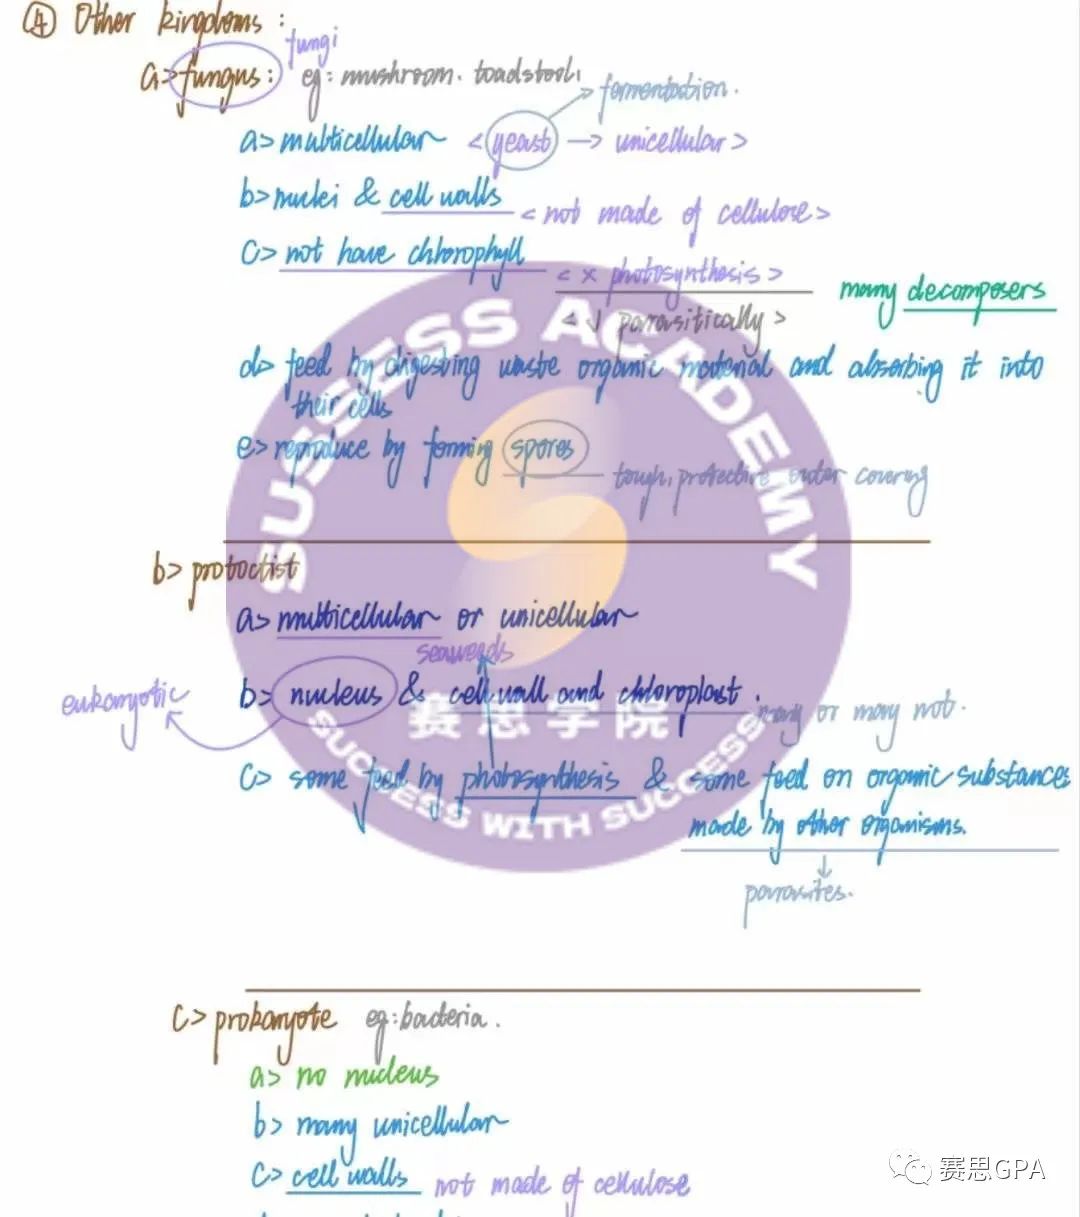 ④ Other kingdoms :
fungi
a> fungus: eg: mushroom. toadstool.
fermentation.
a> multicellular <yeast → unicellular>
b> nuclei & cell walls <not made of cellulose>
c> not have chlorophyll <× photosynthesis>
<√ parasitically>
many decomposers
d> feed by digesting waste organic material and absorbing it into
their cells
e> reproduce by forming spores
tough, protective outer covering
b> protoctist
a> multicellular or unicellular
seaweeds
eukaryotic b> nucleus & cell wall and chloroplast. may or may not.
c> some feed by photosynthesis & some feed on organic substances
made by other organisms.
parasites.
c> prokaryote eg: bacteria.
a> no nucleus
b> many unicellular
c> cell walls not made of cellulose
SUSSESS ACADEMY
赛思学院
SUCCESS WITH SUCCESS
赛思GPA